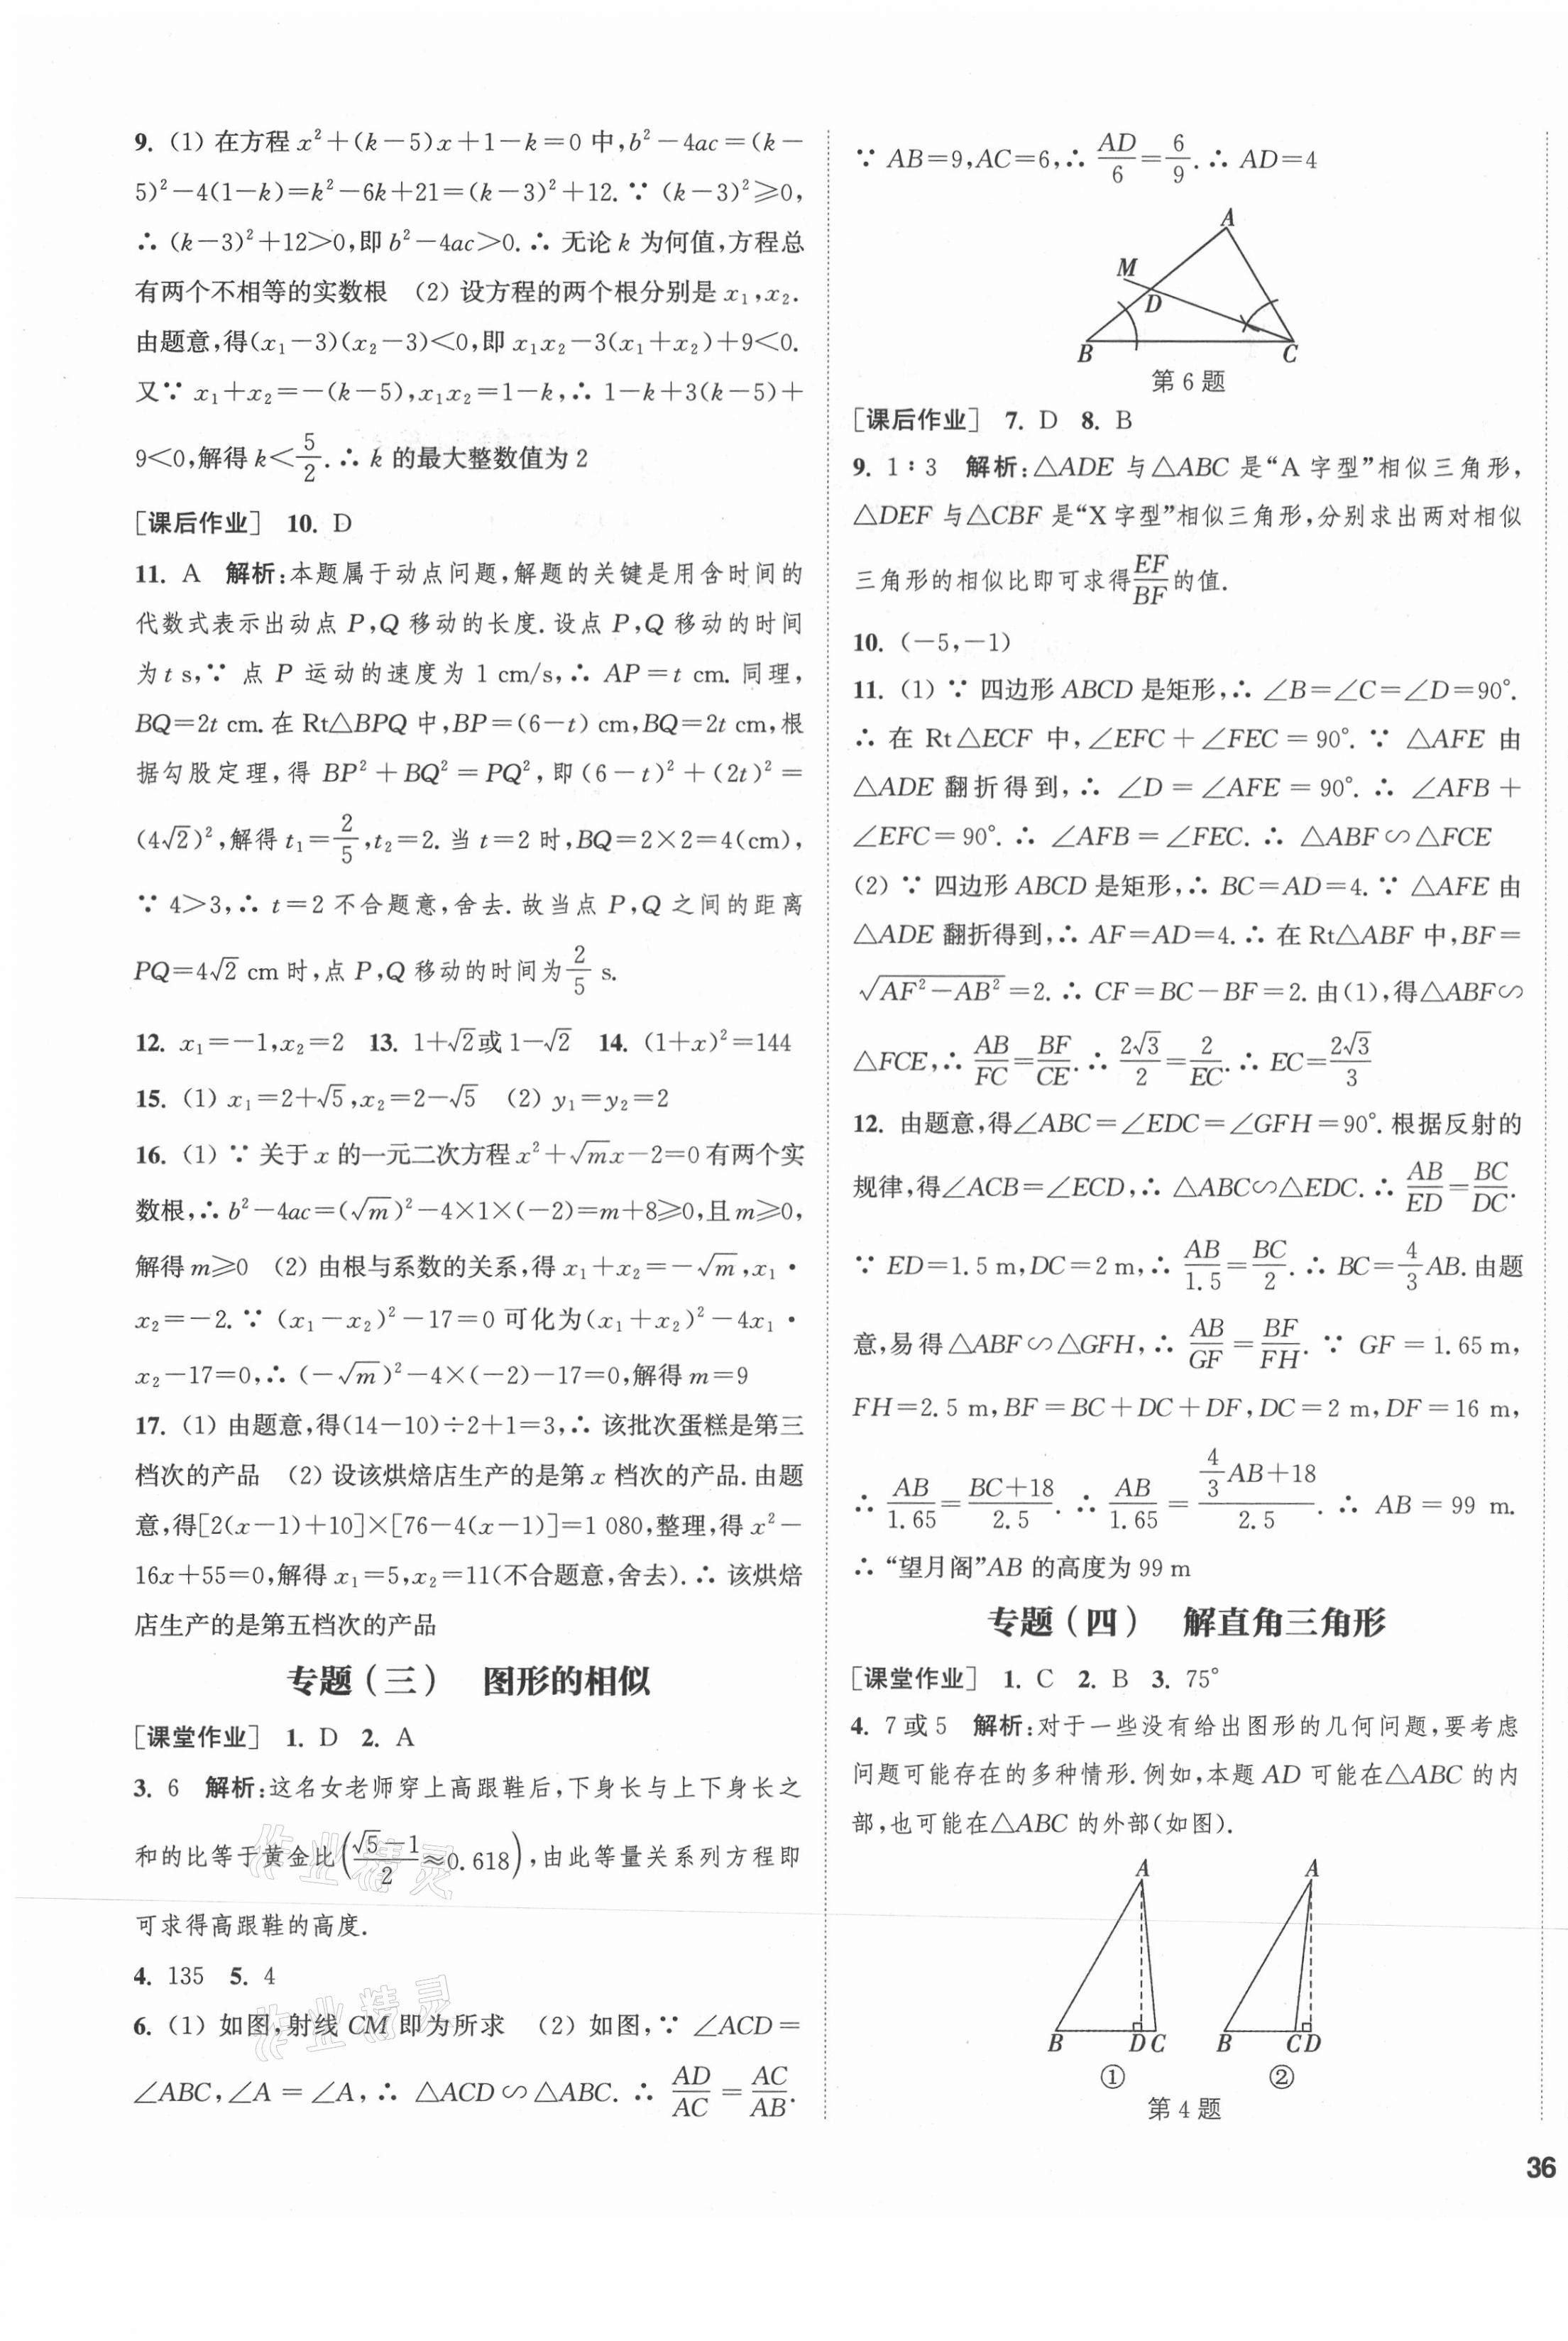 9. (1) 在方程 x²+(k-5)x+1-k=0 中,b²-4ac=(k-
5)²-4(1-k)=k²-6k+21=(k-3)²+12.∵ (k-3)²≥0,
∴ (k-3)²+12>0,即 b²-4ac>0.∴ 无论 k 为何值,方程总
有两个不相等的实数根 (2) 设方程的两个根分别是 x₁,x₂.
由题意,得(x₁-3)(x₂-3)<0,即 x₁x₂-3(x₁+x₂)+9<0.
又∵ x₁+x₂=-(k-5),x₁x₂=1-k,∴ 1-k+3(k-5)+
9<0,解得 k<5/2.∴ k 的最大整数值为 2
[课后作业] 10. D
11. A 解析:本题属于动点问题,解题的关键是用含时间的
代数式表示出动点 P,Q 移动的长度.设点 P,Q 移动的时间
为 t s,∵ 点 P 运动的速度为 1 cm/s,∴ AP=t cm.同理,
BQ=2t cm.在 Rt△BPQ 中,BP=(6-t) cm,BQ=2t cm,根
据勾股定理,得 BP²+BQ²=PQ²,即(6-t)²+(2t)²=
(4√2)²,解得 t₁=2/5,t₂=2.当 t=2 时,BQ=2×2=4(cm),
∵ 4>3,∴ t=2 不合题意,舍去.故当点 P,Q 之间的距离
PQ=4√2 cm 时,点 P,Q 移动的时间为2/5 s.
12. x₁=-1,x₂=2 13. 1+√2或 1-√2 14. (1+x)²=144
15. (1) x₁=2+√5,x₂=2-√5 (2) y₁=y₂=2
16. (1) ∵ 关于 x 的一元二次方程 x²+√m x-2=0 有两个实
数根,∴ b²-4ac=(√m)²-4×1×(-2)=m+8≥0,且 m≥0,
解得 m≥0 (2) 由根与系数的关系,得 x₁+x₂=-√m,x₁·
x₂=-2.∵ (x₁-x₂)²-17=0 可化为(x₁+x₂)²-4x₁·
x₂-17=0,∴ (-√m)²-4×(-2)-17=0,解得 m=9
17. (1) 由题意,得(14-10)÷2+1=3,∴ 该批次蛋糕是第三
档次的产品 (2) 设该烘焙店生产的是第 x 档次的产品.由题
意,得[2(x-1)+10]×[76-4(x-1)]=1 080,整理,得 x²-
16x+55=0,解得 x₁=5,x₂=11(不合题意,舍去).∴ 该烘焙
店生产的是第五档次的产品
专题(三) 图形的相似
[课堂作业] 1. D 2. A
3. 6 解析:这名女老师穿上高跟鞋后,下身长与上下身长之
和的比等于黄金比((√5-1)/2≈0.618),由此等量关系列方程即
可求得高跟鞋的高度.
4. 135 5. 4
6. (1) 如图,射线 CM 即为所求 (2) 如图,∵ ∠ACD=
∠ABC,∠A=∠A,∴ △ACD∽△ABC.∴ AD/AC=AC/AB.
作业精灵
作业精灵
∵ AB=9,AC=6,∴ AD/6=6/9.∴ AD=4
A
M
D
B
C
第 6 题
[课后作业] 7. D 8. B
9. 1∶3 解析:△ADE 与△ABC 是“A 字型”相似三角形,
△DEF 与△CBF 是“X 字型”相似三角形,分别求出两对相似
三角形的相似比即可求得EF/BF的值.
10. (-5,-1)
11. (1) ∵ 四边形 ABCD 是矩形,∴ ∠B=∠C=∠D=90°.
∴ 在 Rt△ECF 中,∠EFC+∠FEC=90°.∵ △AFE 由
△ADE 翻折得到,∴ ∠D=∠AFE=90°.∴ ∠AFB+
∠EFC=90°.∴ ∠AFB=∠FEC.∴ △ABF∽△FCE
(2) ∵ 四边形 ABCD 是矩形,∴ BC=AD=4.∵ △AFE 由
△ADE 翻折得到,∴ AF=AD=4.∴ 在 Rt△ABF 中,BF=
√(AF²-AB²)=2.∴ CF=BC-BF=2.由(1),得△ABF∽
△FCE,∴ AB/FC=BF/CE.∴ 2√3/2=2/EC.∴ EC=2√3/3
12. 由题意,得∠ABC=∠EDC=∠GFH=90°.根据反射的
规律,得∠ACB=∠ECD,∴ △ABC∽△EDC.∴ AB/ED=BC/DC.
∵ ED=1.5 m,DC=2 m,∴ AB/1.5=BC/2.∴ BC=4/3AB.由题
意,易得△ABF∽△GFH,∴ AB/GF=BF/FH.∵ GF=1.65 m,
FH=2.5 m,BF=BC+DC+DF,DC=2 m,DF=16 m,
∴ AB/1.65=(BC+18)/2.5.∴ AB/1.65=(4/3AB+18)/2.5.∴ AB=99 m.
∴ “望月阁”AB 的高度为 99 m
专题(四) 解直角三角形
[课堂作业] 1. C 2. B 3. 75°
4. 7 或 5 解析:对于一些没有给出图形的几何问题,要考虑
问题可能存在的多种情形.例如,本题 AD 可能在△ABC 的内
部,也可能在△ABC 的外部(如图).
A A
B D C B C D
① ②
第 4 题
36